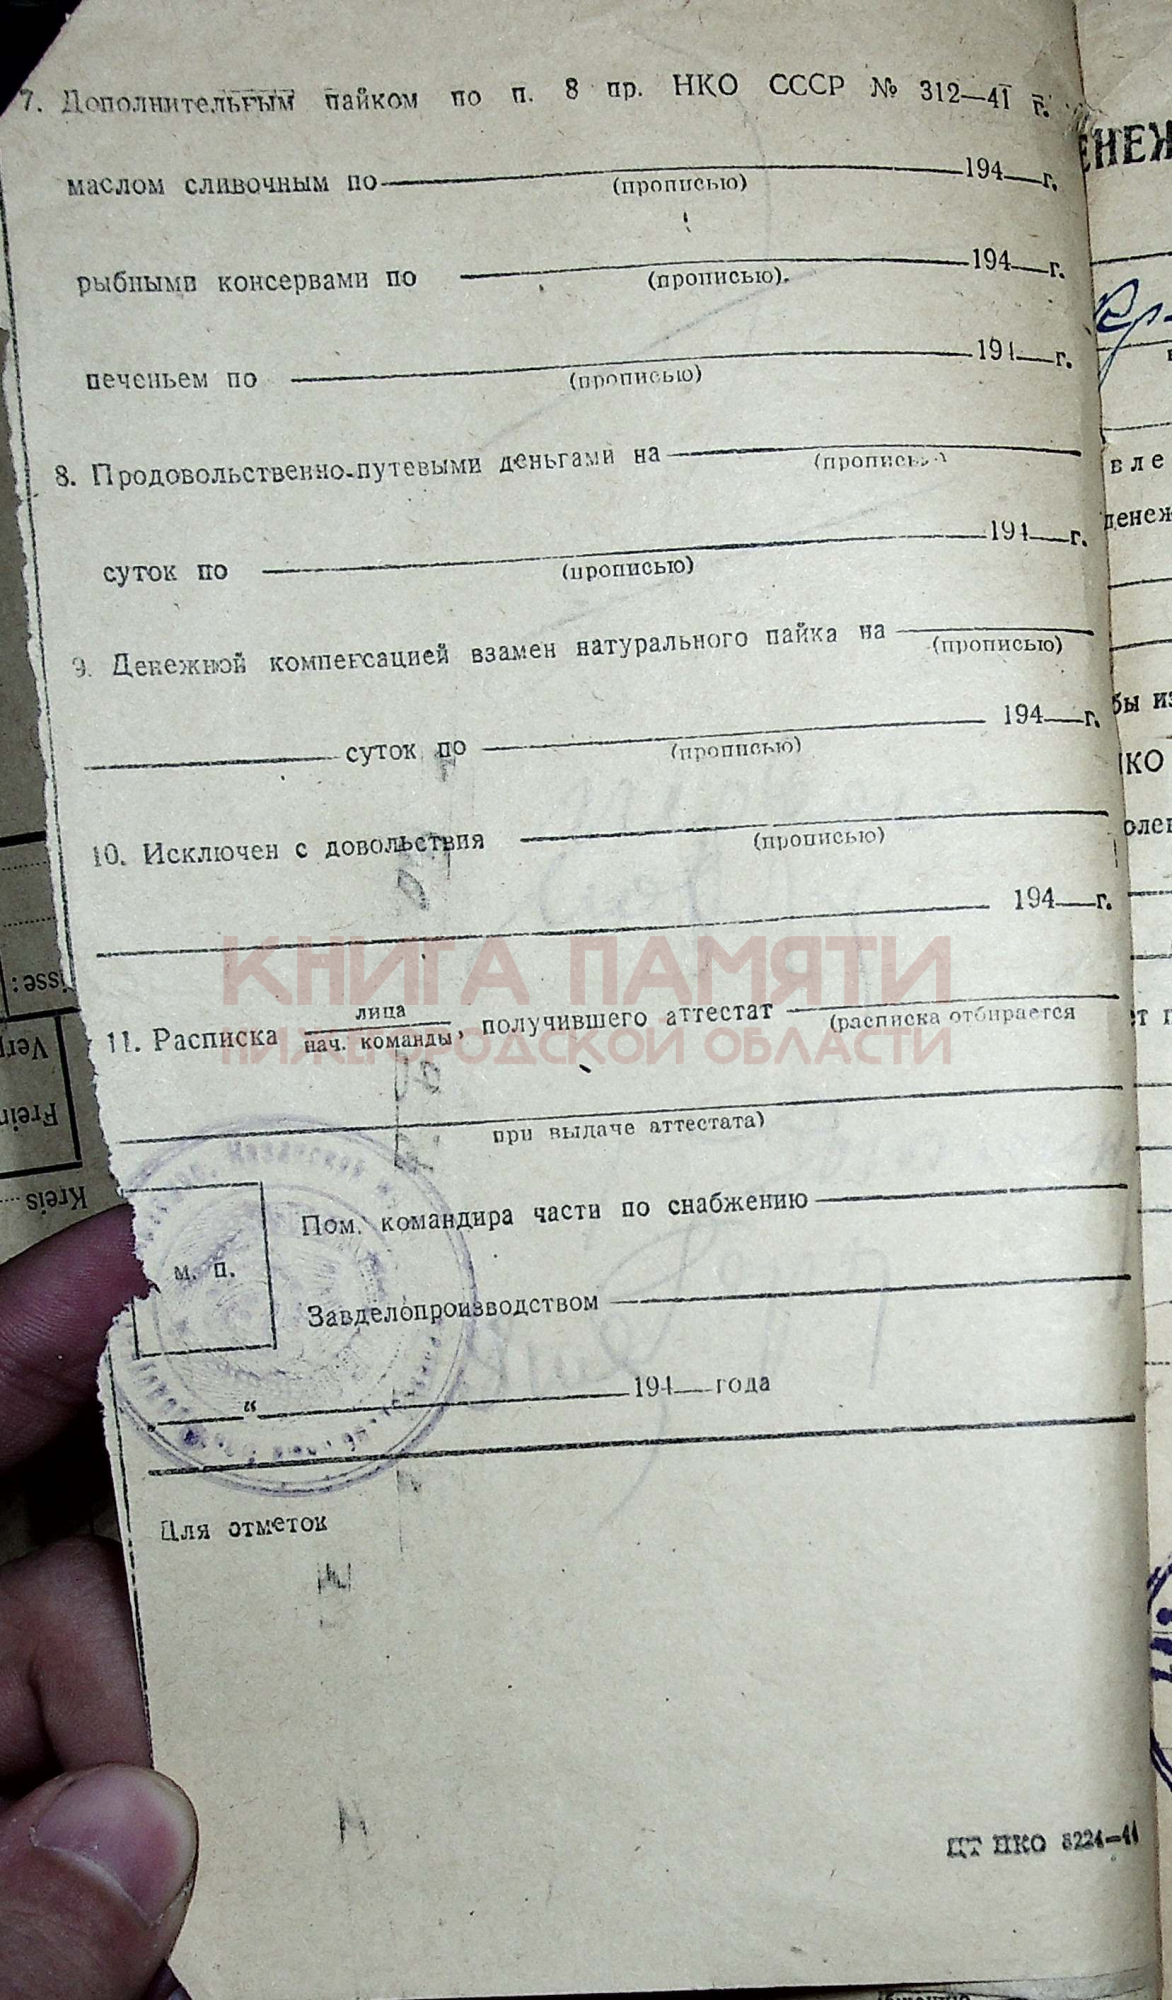 7. Дополнительным пайком по п. 8 пр. НКО СССР № 312—41 г.
маслом сливочным по 194 г.
(прописью)
рыбными консервами по 194 г.
(прописью).
печеньем по 194 г.
(прописью)
8. Продовольственно-путевыми деньгами на
(прописью)
суток по 194 г.
(прописью)
9. Денежной компенсацией взамен натурального пайка на
(прописью)
суток по 194 г.
(прописью)
10. Исключен с довольствия
(прописью)
194 г.
КНИГА ПАМЯТИ
НИЖЕГОРОДСКОЙ ОБЛАСТИ
11. Расписка лица
нач. команды, получившего аттестат
(расписка отбирается
при выдаче аттестата)
Пом. командира части по снабжению
м. п.
Завделопроизводством
" 194 года
Для отметок
ЦТ НКО 8224—41
ЕНЕЖ
вле
денеж
бы из
НКО
олен
ет п
isse:
Verp
Frein
Kreis